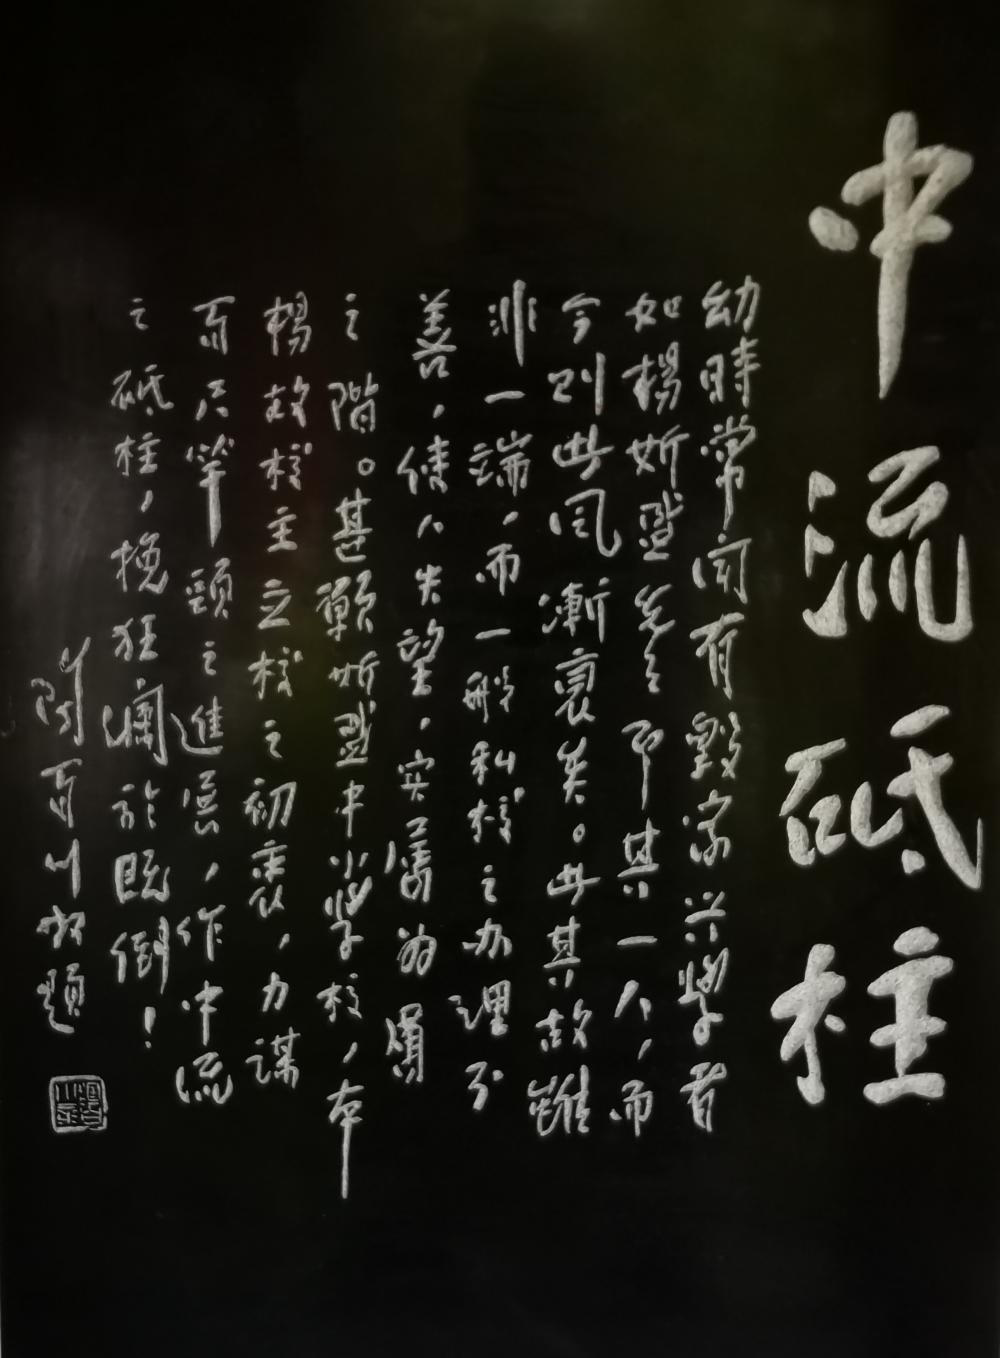 中流砥柱
幼時常聞有毀家興學者
如楊斯盛先生即其一人，而
今則此風漸衰矣。此其故雖
非一端，而一般私校之办理不
善，使人失望，实屬為厲
之階。甚願斯盛中小學校，本
楊故校主立校之初衷，力謀
百尺竿頭之進展，作中流
之砥柱，挽狂瀾於既倒！
陶百川敬題